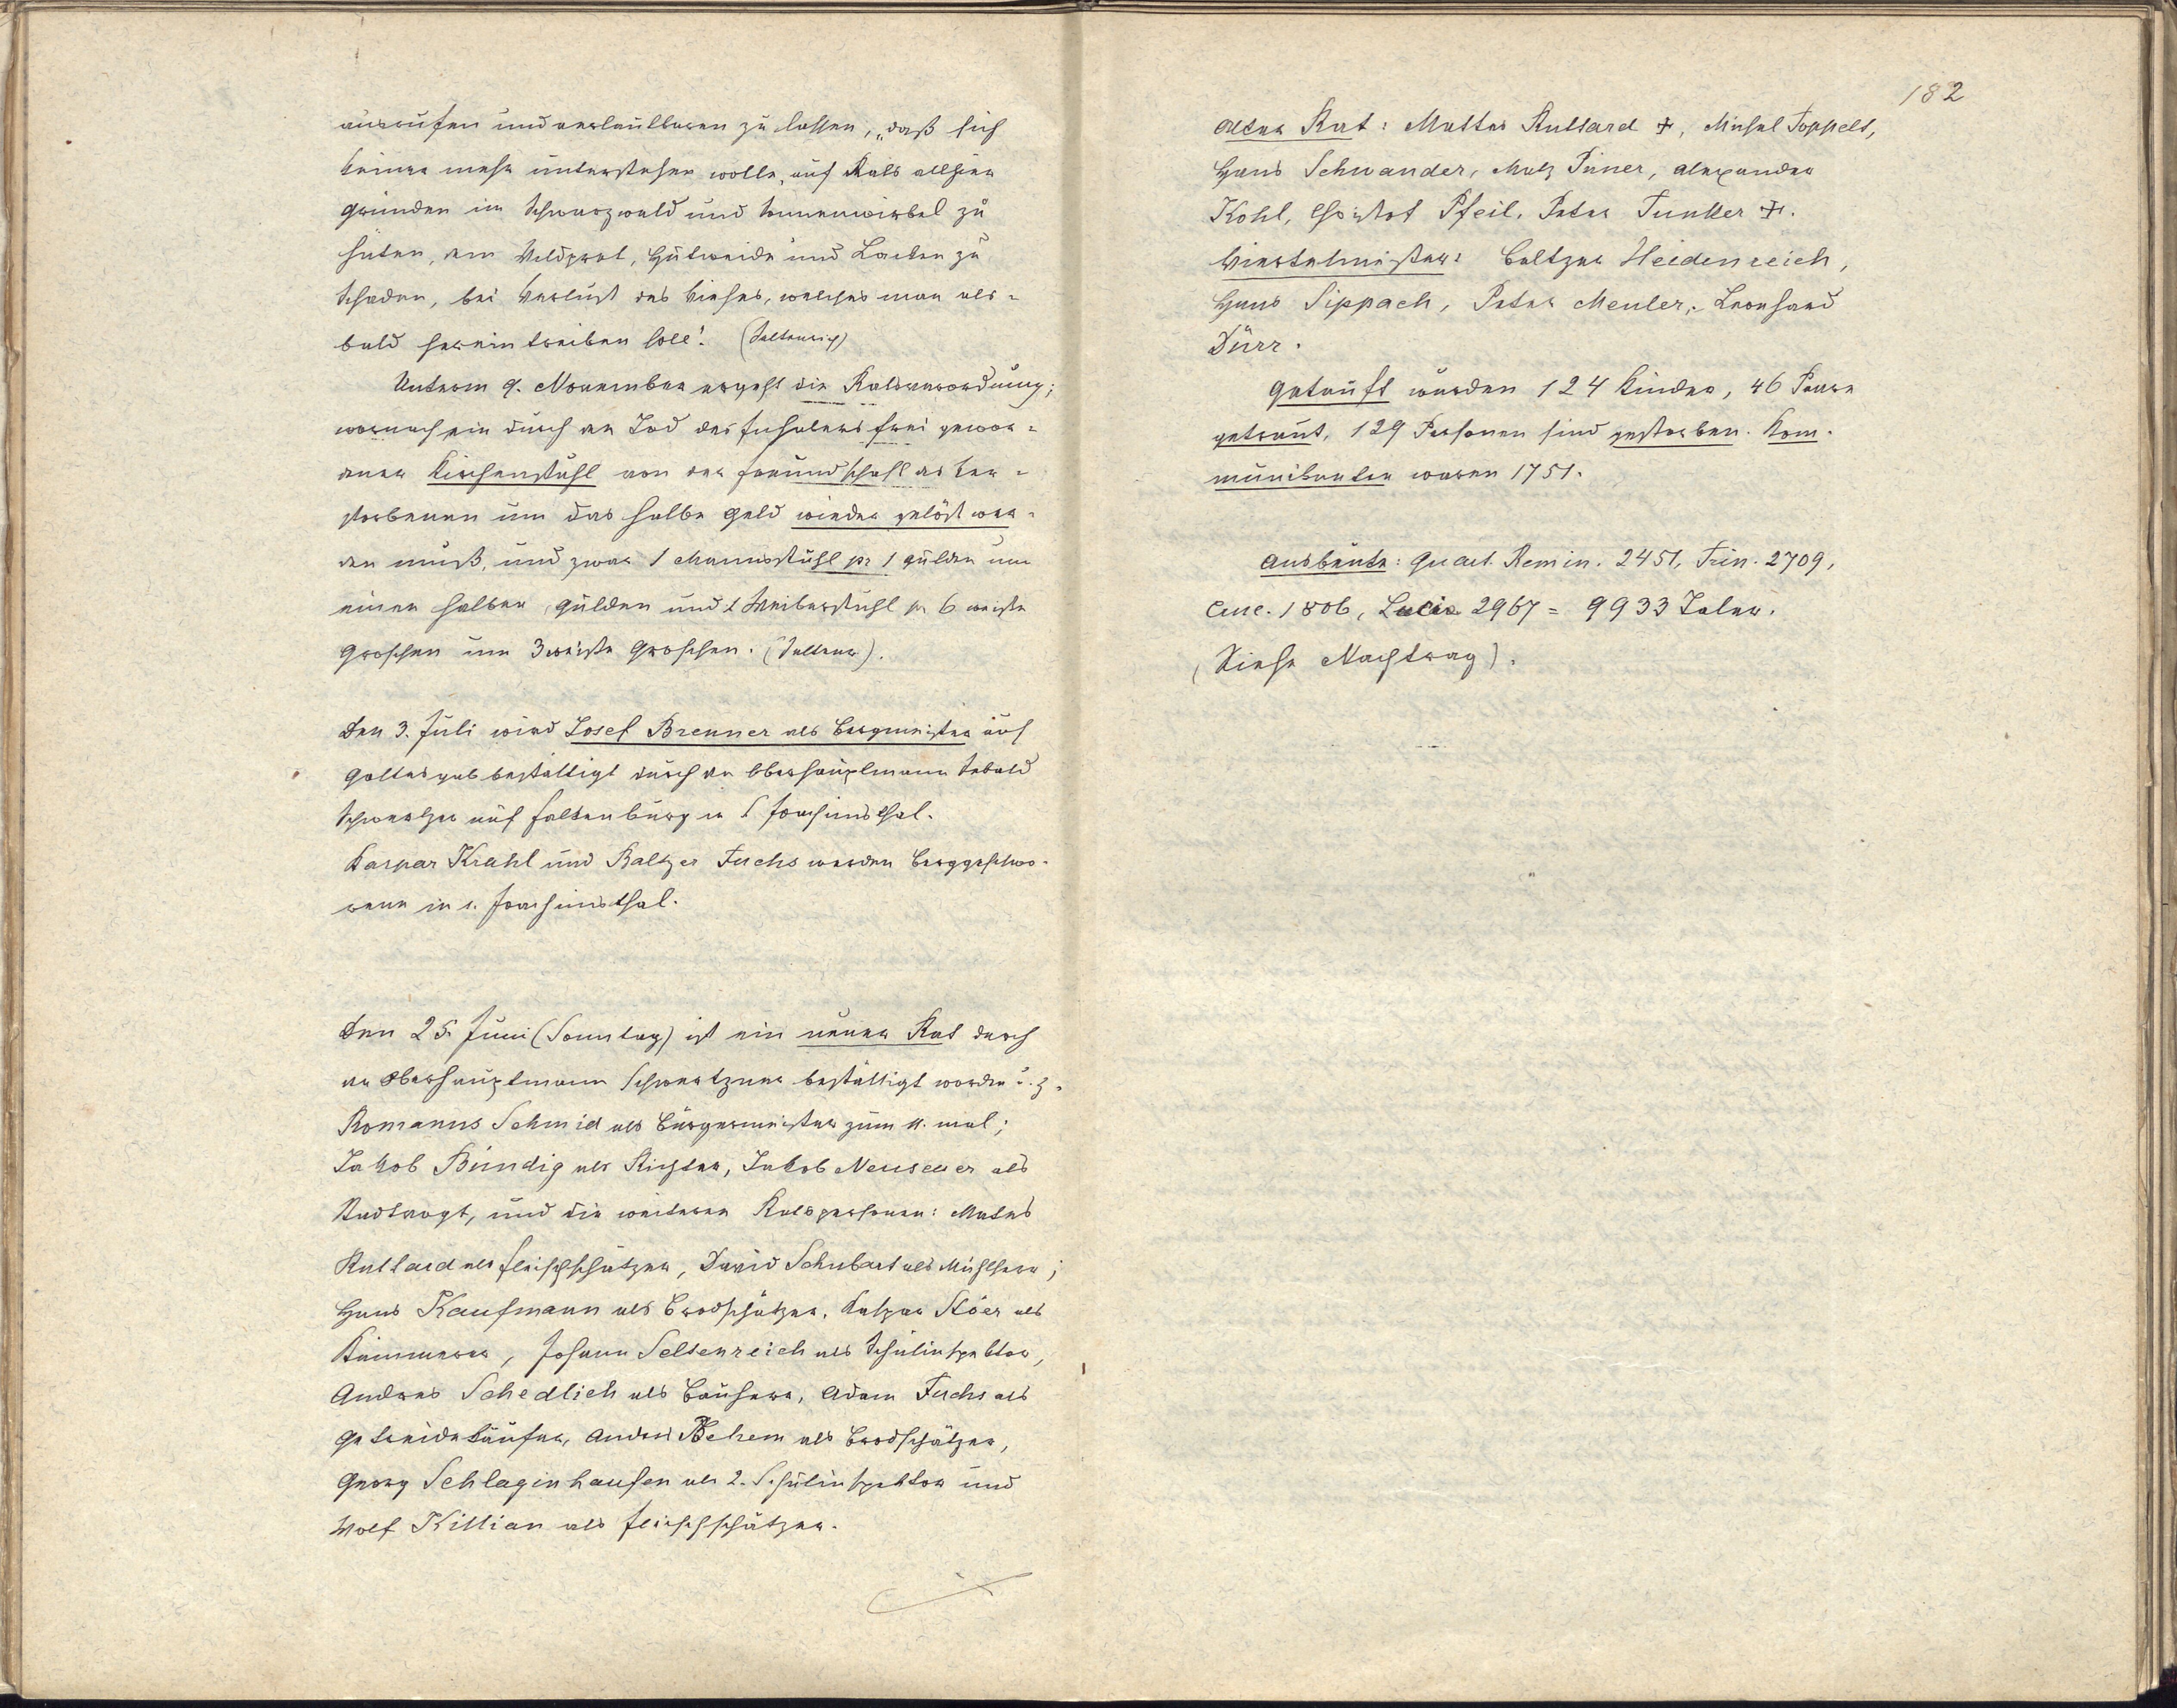 ausrufen und verlautbaren zu lassen, „daß sich
keiner mehr unterstehen wolle, auf Rats allhier
Gründen im Schwarzwald und Sonnenwirbel zu
hüten, dem Wildpret, Hutweide und Lacken zu
Schaden, bei Verlust des Viehes, welches man als-
bald herein treiben soll“. (Seltenreich)
Unterm 9. November ergeht die Ratsverordnung;
wornach ein durch den Tod des Inhabers frei gewor-
dener Kirchenstuhl von der Freundschaft des Ver-
storbenen um das halbe Geld wieder gelöst wer-
den muß, und zwar 1 Mannsstuhl pr 1 Gulden um
einen halben Gulden und 1 Weiberstuhl pr 6 weiße
Groschen um 3 weiße Groschen. (Seltenr.).
Den 3. Juli wird Josef Brenner als Bergmeister auf
Gottesgab bestättigt durch den Oberhauptmann
Schwertzer auf Falkenburg in S Joachimsthal.
Kaspar Krahl und Baltzer Fuchs werden Berggeschwo-
rene in s. Joachimsthal.
Den 25. Juni (Sonntag) ist ein neuer Rat durch
den Oberhauptmann Schwertzner bestättigt worden u. z.
Romanus Schmid als Bürgermeister zum 11. mal;
Jakob Bündig als Richter, Jakob Neuseuer als
Stadtvogt, und die weiteren Ratspersonen: Mates
Ruttard als Fleischschätzer, David Schubart als Mühlherr;
Hans Kaufmann als Brodschätzer, Kaspar Stöer als
Kämmerer, Johann Seltenreich als Schulinspektor,
Andreas Schedlich als Bauherr, Adam Fuchs als
Getreidekäufer, Andres Behem als Brodschätzer,
Georg Schlaginhaufen als 2. Schulinspektor und
Wolf Killian als Fleischschätzer.
182
Alter Rat: Mattes Ruttard +, Michel Toppelt,
Hans Schwander, Matz Püner, Alexander
Kohl, Christof Pfeil, Peter Tunkler +.
Viertelmeister: Baltzer Heidenreich,
Hans Sippach, Peter Meuler, Leonhard
Dürr.
Getauft wurden 124 Kinder, 46 Paare
getraut, 129 Personen sind gestorben. Kom-
munikanten waren 1751.
Ausbeute: Quart. Remin. 2451, Trin. 2709,
Cruc. 1806, Lucia 2967 = 9933 Taler.
(Siehe Nachtrag).